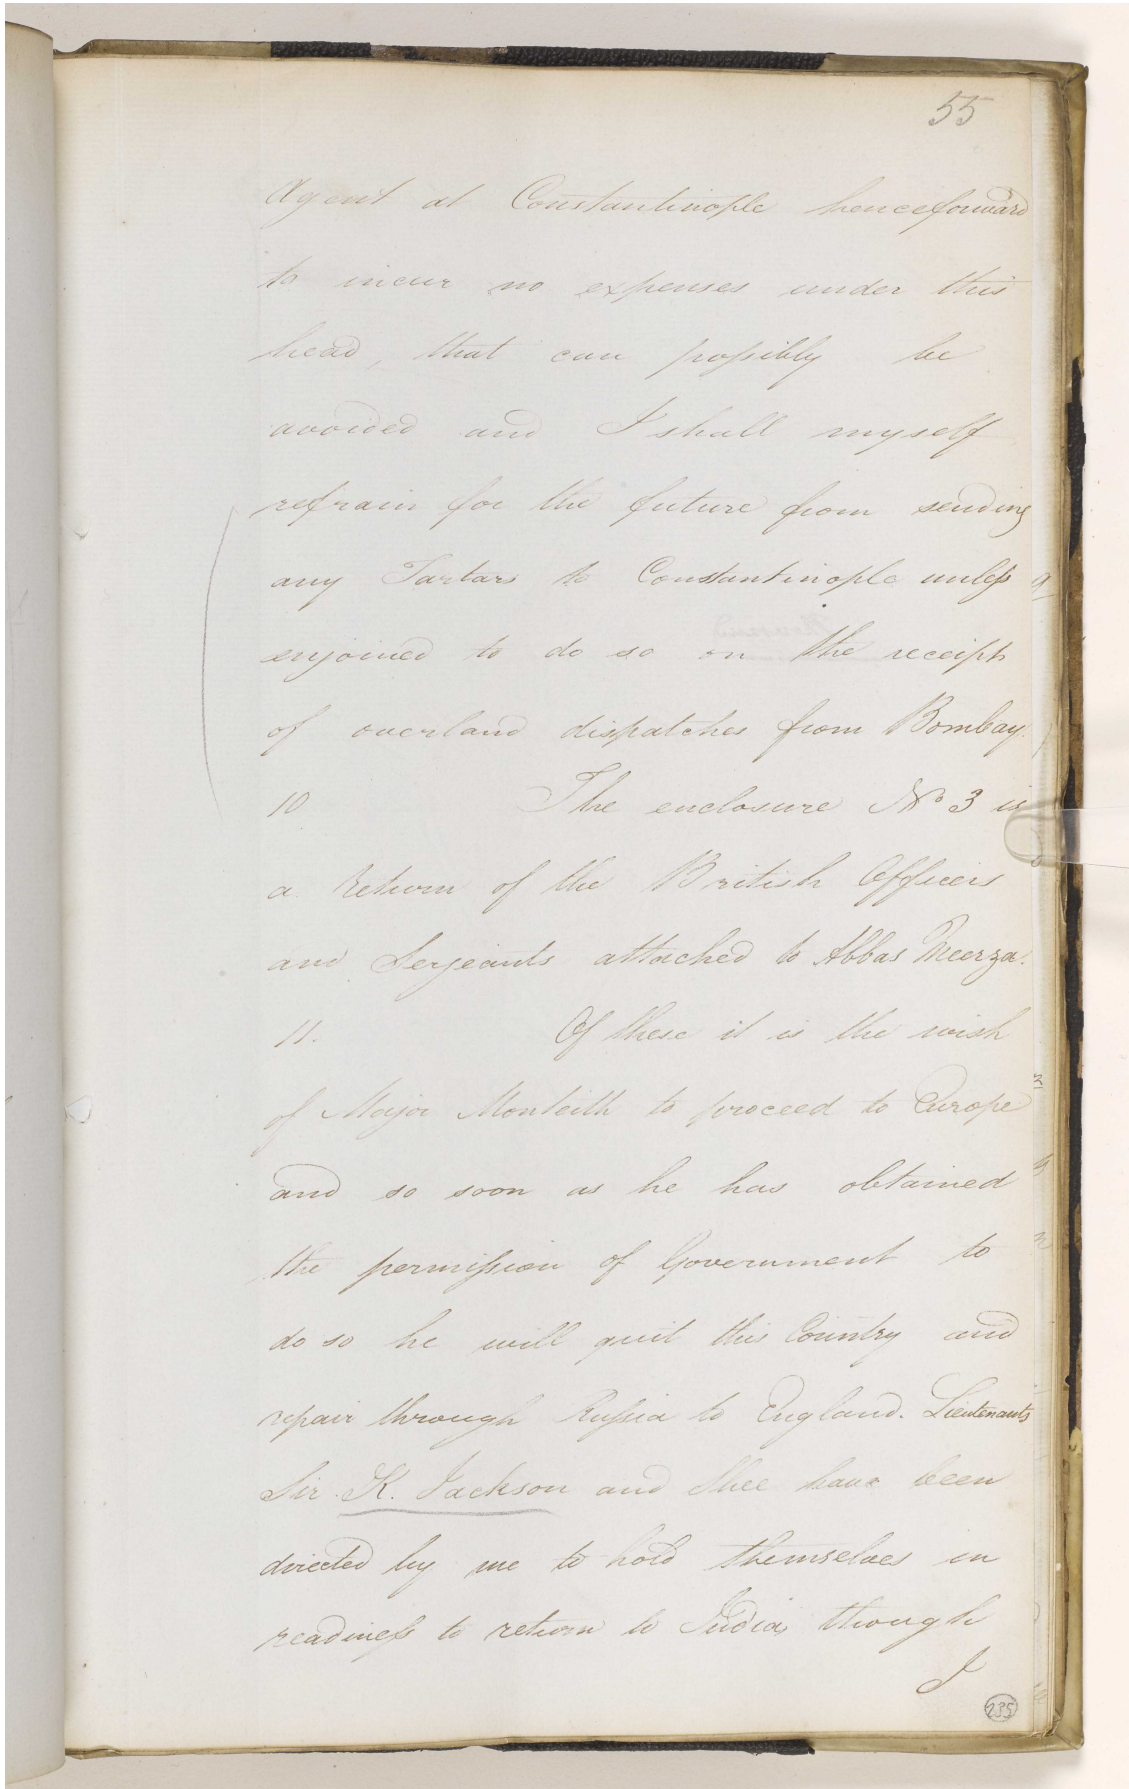 55
Agent at Constantinople henceforward
to incur no expenses under this
head, that can possibly be
avoided and I shall myself
refrain for the future from sending
any Tartars to Constantinople unless
enjoined to do so on the receipt
of overland dispatches from Bombay.
10 The enclosure No 3 is
a return of the British Officers
and Serjeants attached to Abbas Meerza.
11. Of these it is the wish
of Major Monteith to proceed to Europe
and so soon as he has obtained
the permission of Government to
do so he will quit this Country and
repair through Russia to England. Lieutenants
Sir K. Jackson and Shee have been
directed by me to hold themselves in
readiness to return to India, though
I
235